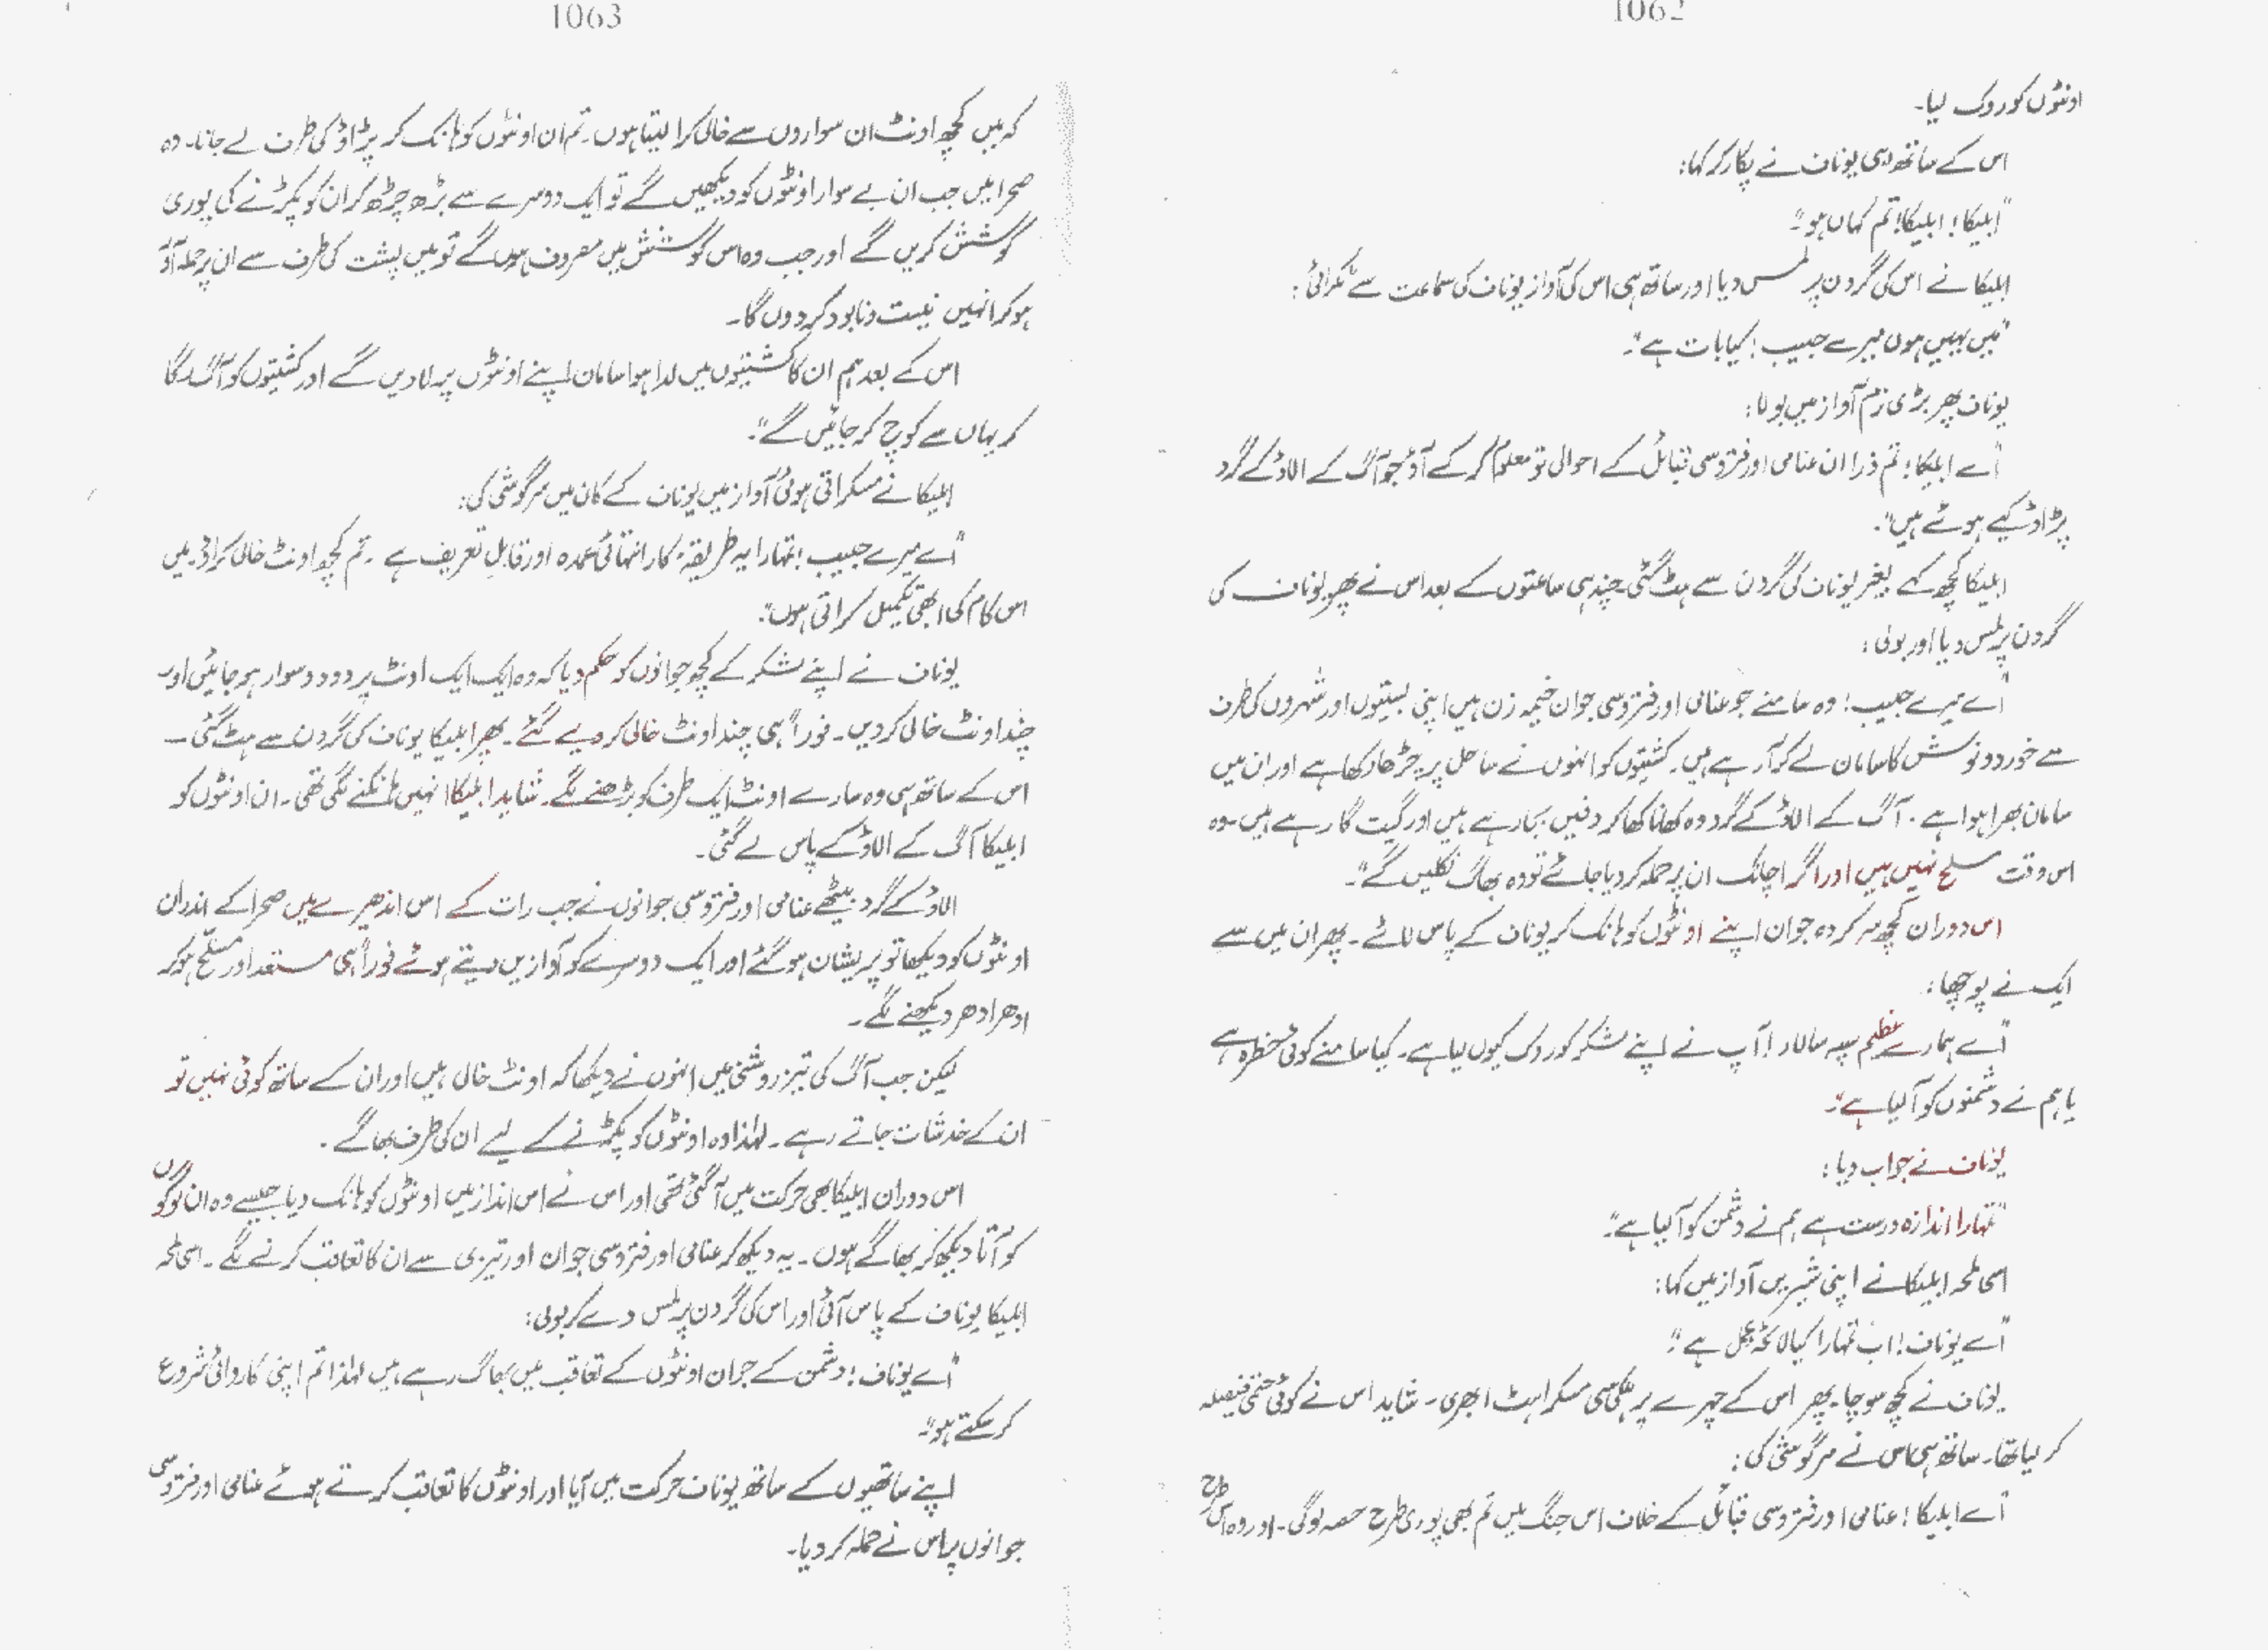 1062
اونٹوں کو روک لیا۔
اس کے ساتھ ہی یوناف نے پکار کر کہا:
"ابلیکا! ابلیکا! تم کہاں ہو"۔
ابلیکا نے اس کی گردن پر لمس دیا اور ساتھ ہی اس کی آواز یوناف کی سماعت سے ٹکرائی:
"میں یہیں ہوں میرے حبیب! کیا بات ہے"۔
یوناف پھر بڑی نرم آواز میں بولا:
"اے ابلیکا! تم ذرا ان عنامی اور فتروسی قبائل کے احوالی تو معلوم کر کے آؤ جو آگ کے الاؤ کے گرد
پڑاؤ کیے ہوئے ہیں"۔
ابلیکا کچھ کہے بغیر یوناف کی گردن سے ہٹ گئی۔ چند ہی ساعتوں کے بعد اس نے پھر یوناف کی
گردن پر لمس دیا اور بولی:
"اے میرے حبیب! وہ سامنے جو عنامی اور فتروسی جوان خیمہ زن ہیں اپنی بستیوں اور شہروں کی طرف
سے خورد و نوش کا سامان لے کر آ رہے ہیں۔ کشتیوں کو انہوں نے ساحل پر چڑھا رکھا ہے اور ان میں
سامان بھرا ہوا ہے۔ آگ کے الاؤ کے گرد وہ کھانا کھا کر دفیں بجا رہے ہیں اور گیت گا رہے ہیں۔ وہ
اس وقت مسلح نہیں ہیں اور اگر اچانک ان پر حملہ کر دیا جائے تو وہ بھاگ نکلیں گے"۔
اس دوران کچھ سرکردہ جوان اپنے اونٹوں کو ہانک کر یوناف کے پاس لائے۔ پھر ان میں سے
ایک نے پوچھا:
"اے ہمارے عظیم سپہ سالار! آپ نے اپنے لشکر کو روک کیوں لیا ہے۔ کیا سامنے کوئی خطرہ ہے
یا ہم نے دشمنوں کو آ لیا ہے"۔
یوناف نے جواب دیا:
"تمہارا اندازہ درست ہے ہم نے دشمن کو آ لیا ہے"۔
اسی لمحہ ابلیکا نے اپنی شیریں آواز میں کہا:
"اے یوناف! اب تمہارا کیا لائحہ عمل ہے"۔
یوناف نے کچھ سوچا۔ پھر اس کے چہرے پر ہلکی سی مسکراہٹ ابھری۔ شاید اس نے کوئی حتمی فیصلہ
کر لیا تھا۔ ساتھ ہی اس نے سرگوشی کی:
"اے ابلیکا! عنامی اور فتروسی قبائل کے خلاف اس جنگ میں تم بھی پوری طرح حصہ لو گی۔ اور وہ اس طرح
1063
کہ میں کچھ اونٹ ان سواروں سے خالی کرا لیتا ہوں۔ تم ان اونٹوں کو ہانک کر پڑاؤ کی طرف لے جانا۔ وہ
صحرا میں جب ان بے سوار اونٹوں کو دیکھیں گے تو ایک دوسرے سے بڑھ چڑھ کر ان کو پکڑنے کی پوری
کوشش کریں گے اور جب وہ اس کوشش میں مصروف ہوں گے تو میں پشت کی طرف سے ان پر حملہ آؤر
ہو کر انہیں نیست و نابود کر دوں گا۔
اس کے بعد ہم ان کا کشتیوں میں لدا ہوا سامان اپنے اونٹوں پر لادیں گے اور کشتیوں کو آگ لگا
کر یہاں سے کوچ کر جائیں گے"۔
ابلیکا نے مسکراتی ہوئی آواز میں یوناف کے کان میں سرگوشی کی:
"اے میرے حبیب! تمہارا یہ طریقۂ کار انتہائی عمدہ اور قابل تعریف ہے۔ تم کچھ اونٹ خالی کراؤ میں
اس کام کی ابھی تکمیل کراتی ہوں"۔
یوناف نے اپنے لشکر کے کچھ جوانوں کو حکم دیا کہ وہ ایک ایک اونٹ پر دو دو سوار ہو جائیں اور
چند اونٹ خالی کر دیں۔ فوراً ہی چند اونٹ خالی کر دیے گئے۔ پھر ابلیکا یوناف کی گردن سے ہٹ گئی۔
اس کے ساتھ ہی وہ سارے اونٹ ایک طرف کو بڑھنے لگے۔ شاید ابلیکا انہیں ہانکنے لگی تھی۔ ان اونٹوں کو
ابلیکا آگ کے الاؤ کے پاس لے گئی۔
الاؤ کے گرد بیٹھے عنامی اور فتروسی جوانوں نے جب رات کے اس اندھیرے میں صحرا کے اندر ان
اونٹوں کو دیکھا تو پریشان ہو گئے اور ایک دوسرے کو آوازیں دیتے ہوئے فوراً ہی مستعد اور مسلح ہو کر
ادھر ادھر دیکھنے لگے۔
لیکن جب آگ کی تیز روشنی میں انہوں نے دیکھا کہ اونٹ خالی ہیں اور ان کے ساتھ کوئی نہیں تو
ان کے خدشات جاتے رہے۔ لہٰذا وہ اونٹوں کو پکڑنے کے لیے ان کی طرف بھاگے۔
اس دوران ابلیکا بھی حرکت میں آ گئی تھی اور اس نے اس انداز میں اونٹوں کو ہانک دیا جیسے وہ ان لوگوں
کو آتا دیکھ کر بھاگے ہوں۔ یہ دیکھ کر عنامی اور فتروسی جوان اور تیزی سے ان کا تعاقب کرنے لگے۔ اسی لمحہ
ابلیکا یوناف کے پاس آئی اور اس کی گردن پر لمس دے کر بولی:
"اے یوناف! دشمن کے جوان اونٹوں کے تعاقب میں بھاگ رہے ہیں لہٰذا تم اپنی کاروائی شروع
کر سکتے ہو"۔
اپنے ساتھیوں کے ساتھ یوناف حرکت میں آیا اور اونٹوں کا تعاقب کرتے ہوئے عنامی اور فتروسی
جوانوں پر اس نے حملہ کر دیا۔